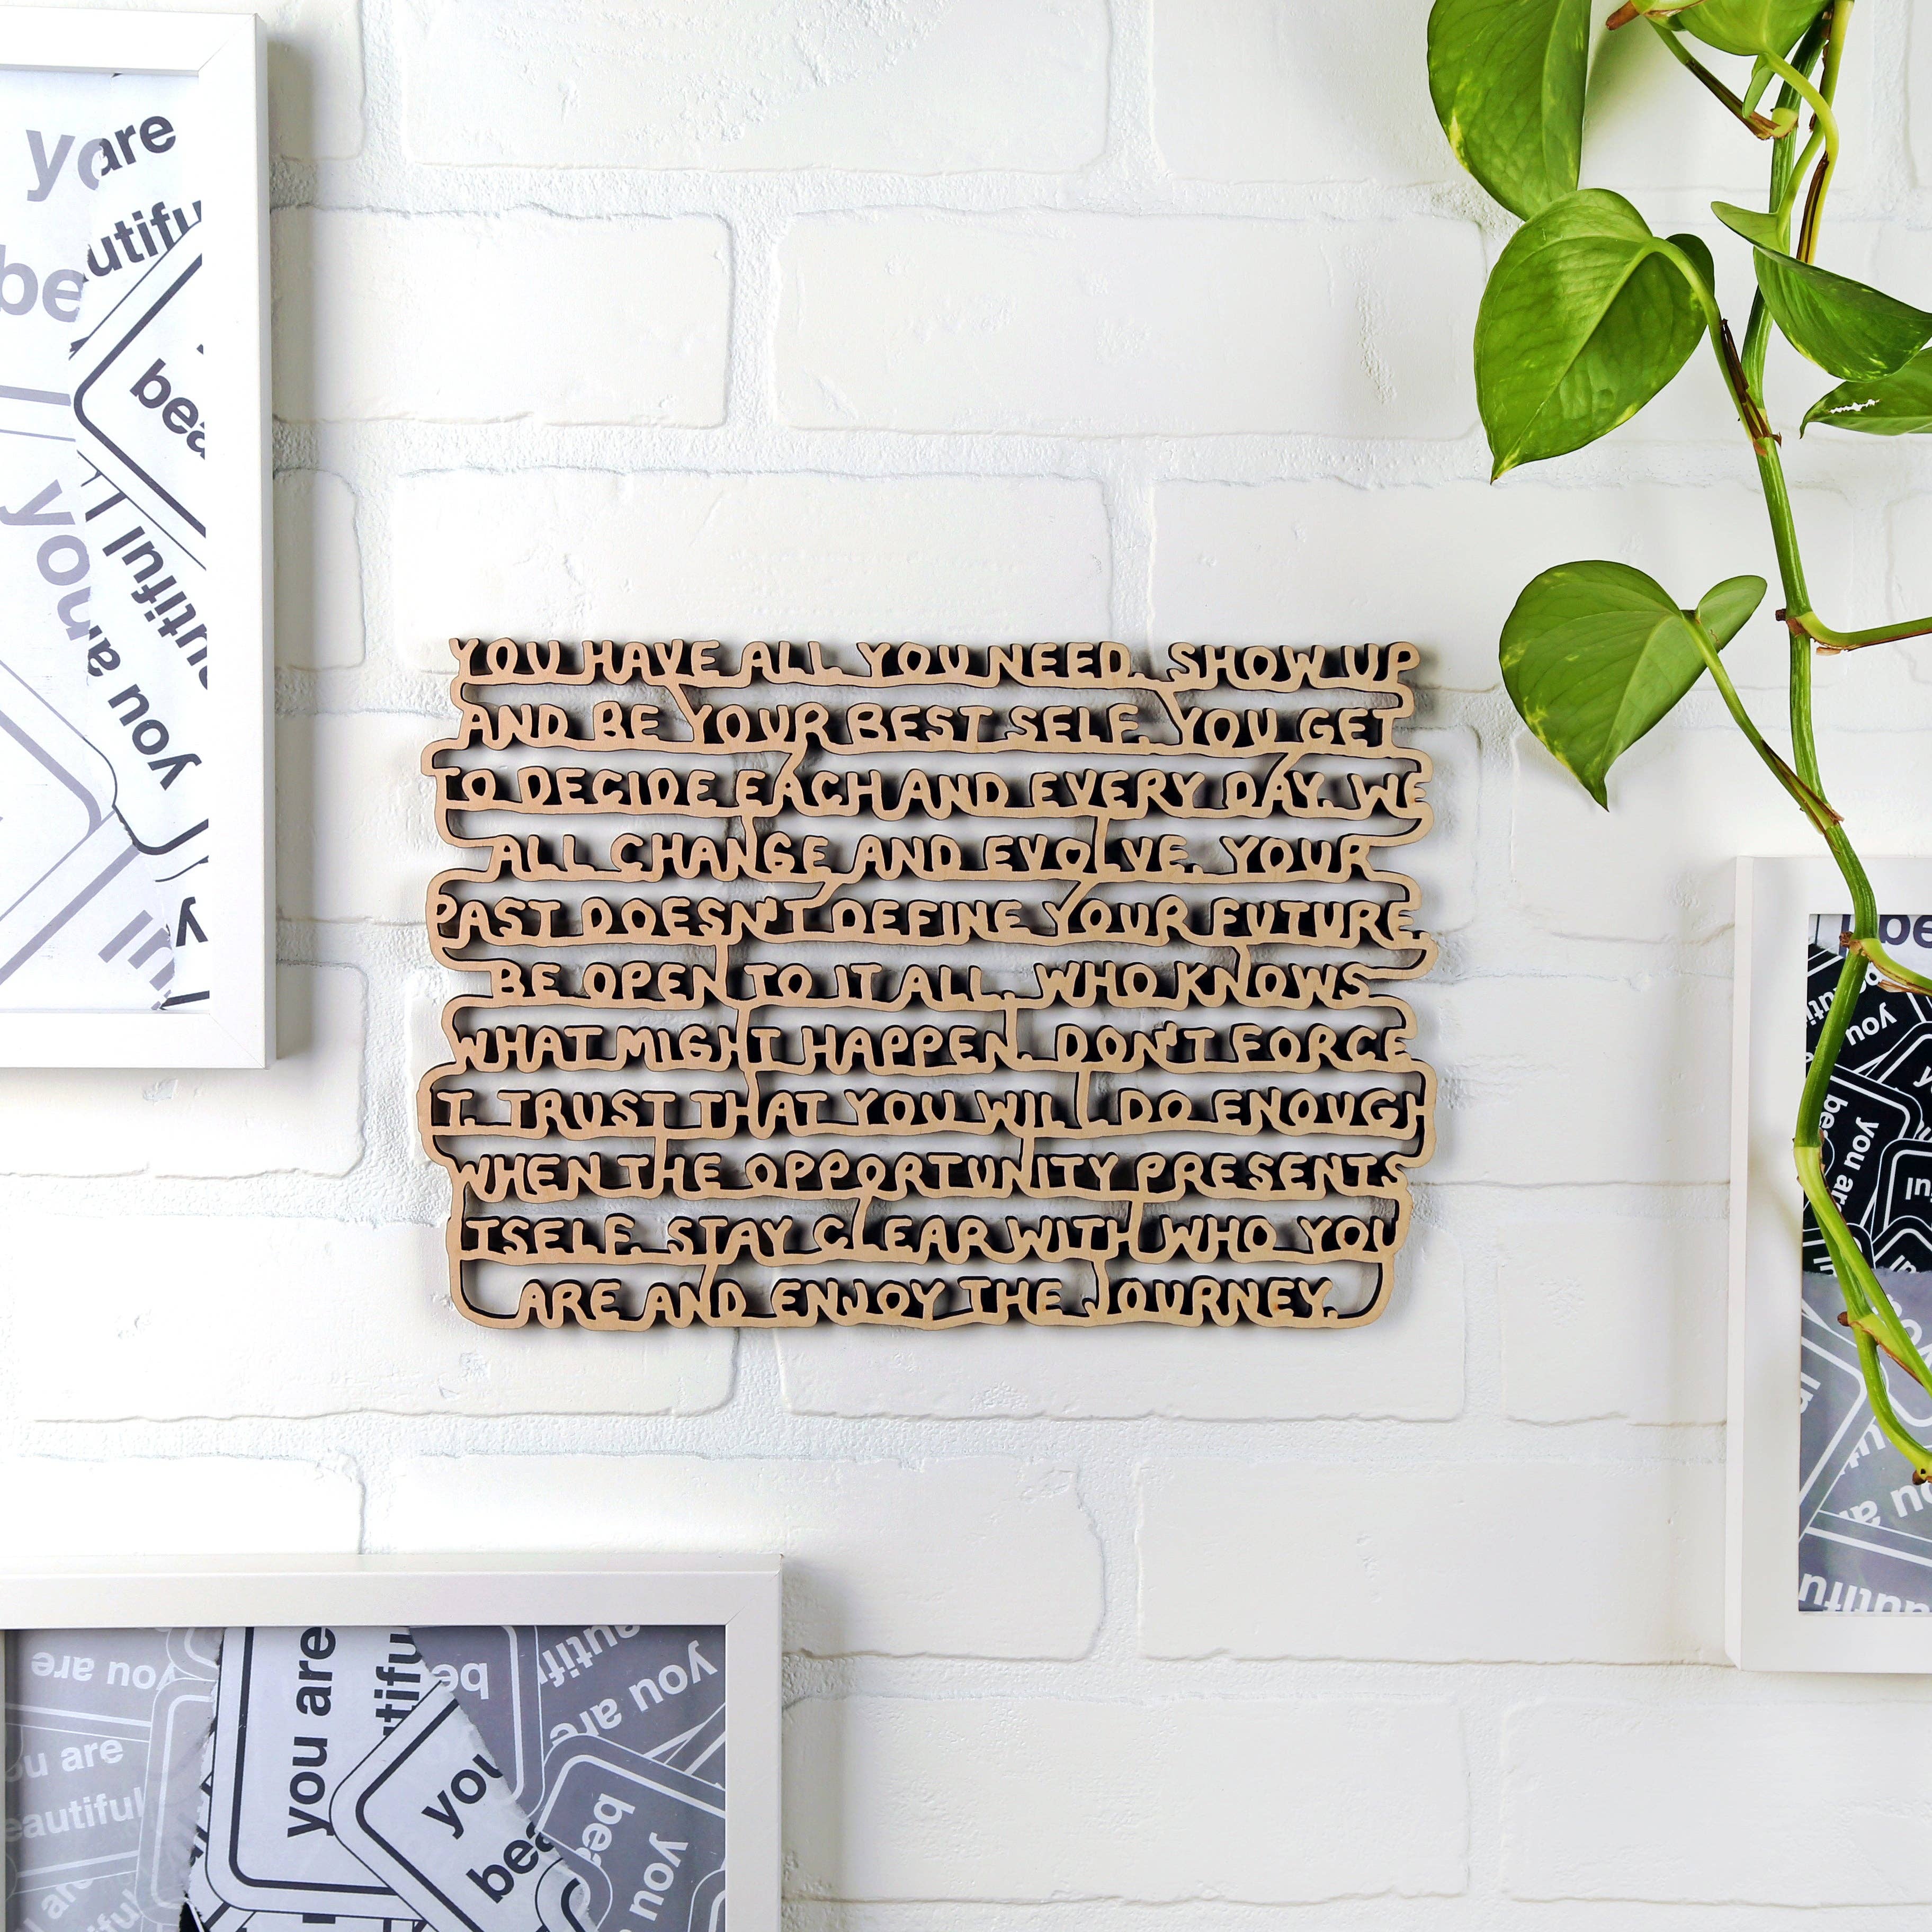 YOU HAVE ALL YOU NEED. SHOW UP
AND BE YOUR BEST SELF. YOU GET
TO DECIDE EACH AND EVERY DAY. WE
ALL CHANGE AND EVOLVE. YOUR
PAST DOESN'T DEFINE YOUR FUTURE.
BE OPEN TO IT ALL. WHO KNOWS
WHAT MIGHT HAPPEN. DON'T FORCE
IT. TRUST THAT YOU WILL DO ENOUGH
WHEN THE OPPORTUNITY PRESENTS
ITSELF. STAY CLEAR WITH WHO YOU
ARE AND ENJOY THE JOURNEY.
are
you
you are
you are
you are
you
you
you
you are